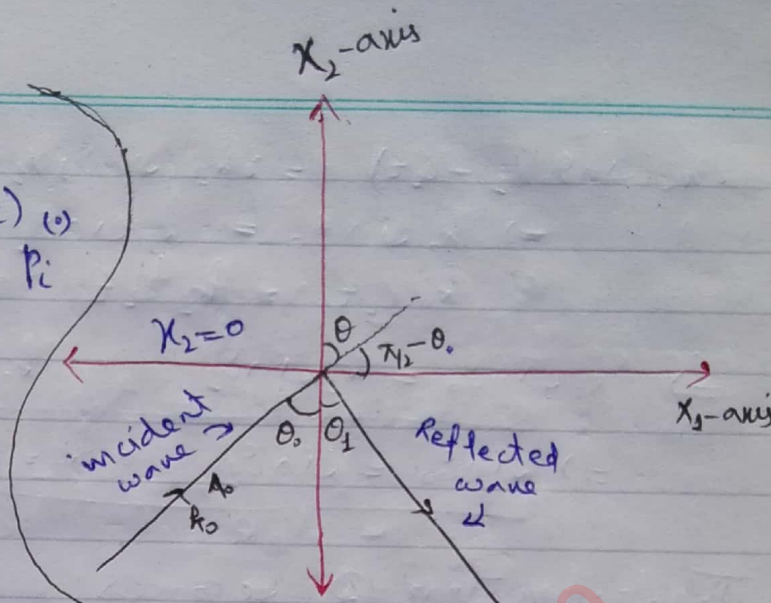 x₂-axis
) (०)
Pᵢ
x₂=0
θ
π/2-θ₀
x₁-axis
incident wave
θ₀ θ₁
Reflected wave
A₀
k₀